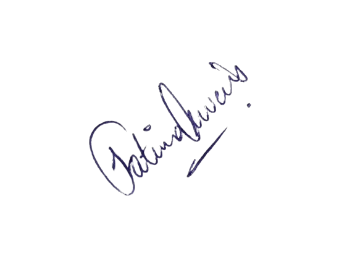 Fatima Awais